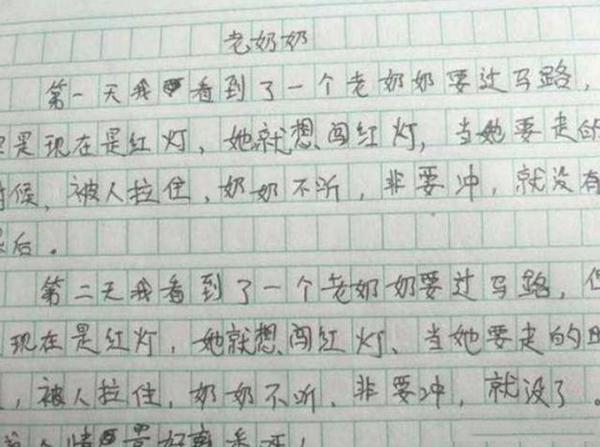 老奶奶
第一天我看到了一个老奶奶要过马路，
是现在是红灯，她就想闯红灯，当她要走的
候，被人拉住，奶奶不听，非要冲，就没有
后。
第二天我看到了一个老奶奶要过马路，但
现在是红灯，她就想闯红灯、当她要走的时
，被人拉住，奶奶不听、非要冲，就没了。